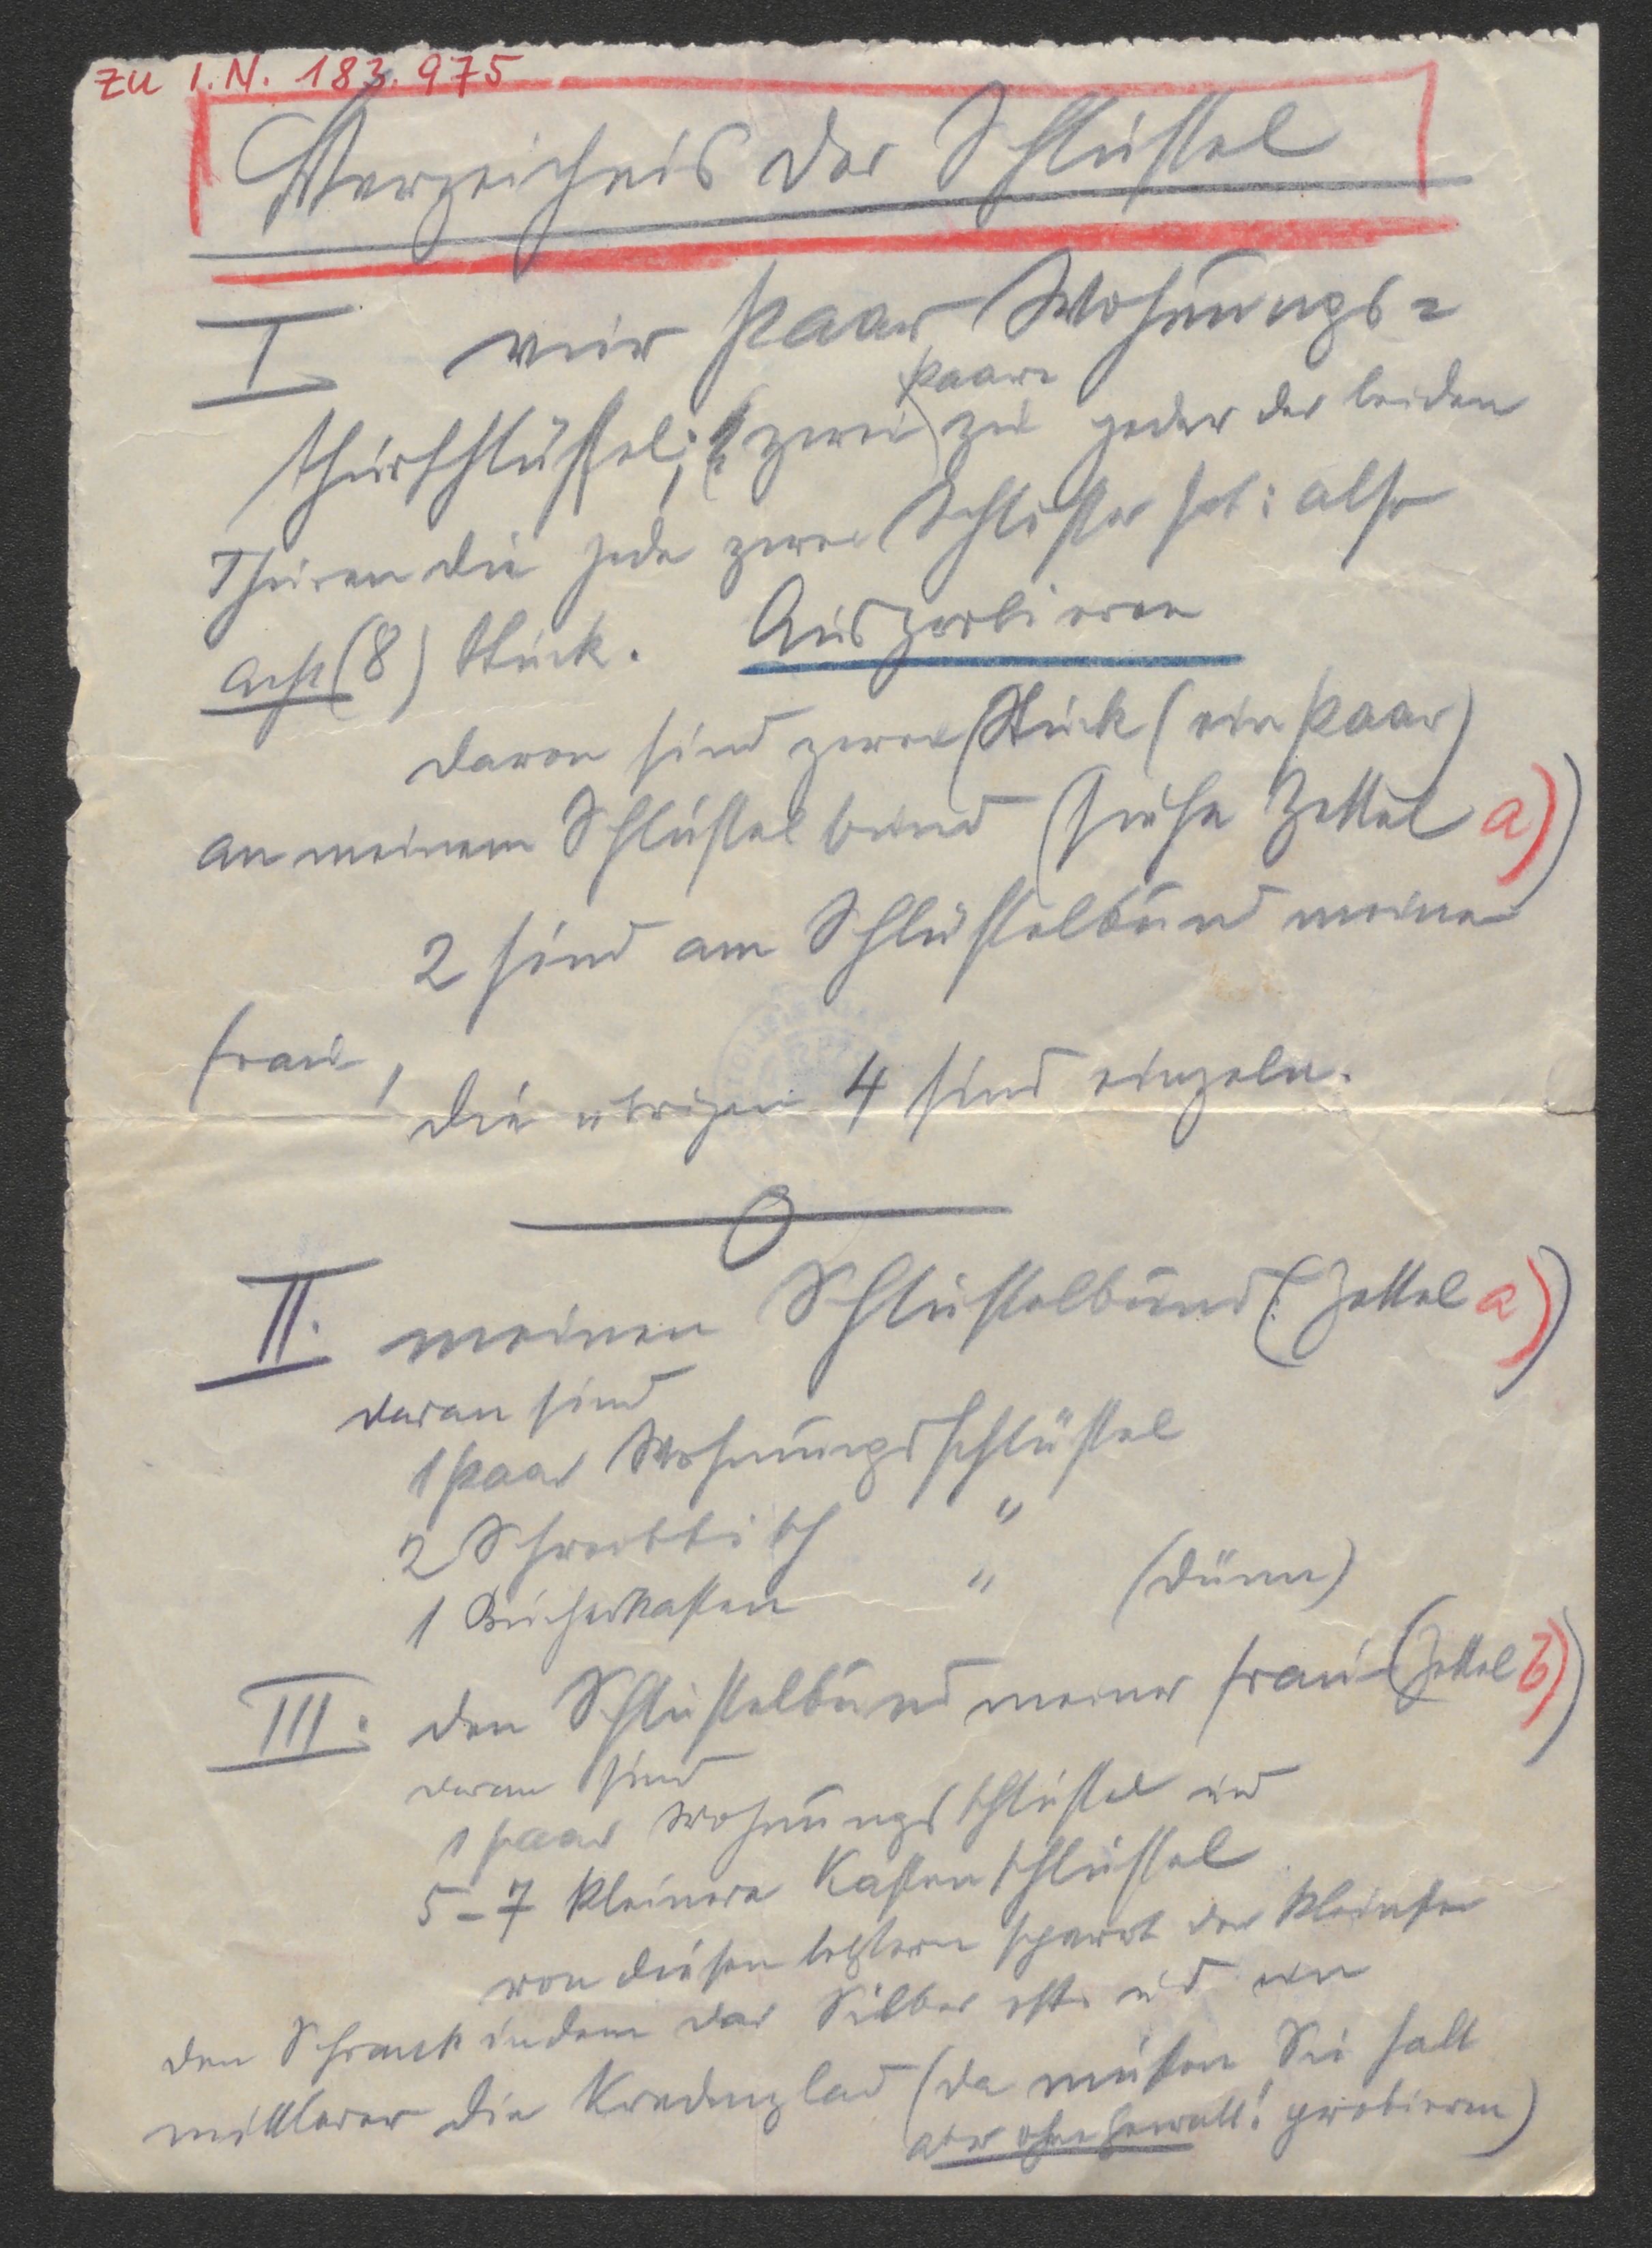 zu I.N. 183.975
Verzeichnis der Schlüssel
I vier Paar Wohnungs=
thürschlüssel; zwei Paare zu jeder der beiden
Thüren die jede zwei Schlösser hat: also
acht (8) Stück. Ausprobieren
davon sind zwei Stück (ein Paar)
an meinem Schlüsselbund (siehe Zettel a))
2 sind am Schlüsselbund meiner
Frau,
die übrigen 4 sind einzeln.
II. meinen Schlüsselbund (Zettel a))
daran sind
1 Paar Wohnungsschlüssel
2 Schreibtisch "
1 Bücherkasten " (dünn)
III. den Schlüsselbund meiner Frau (Zettel b))
daran sind
1 Paar Wohnungsschlüssel und
5-7 kleinere Kastenschlüssel
von diesen letztern sperrt der kleinste
den Schrank indem das Silber ist und ein
mittlerer die Kredenzlad (da müssen Sie halt
aber ohne Gewalt! probieren)